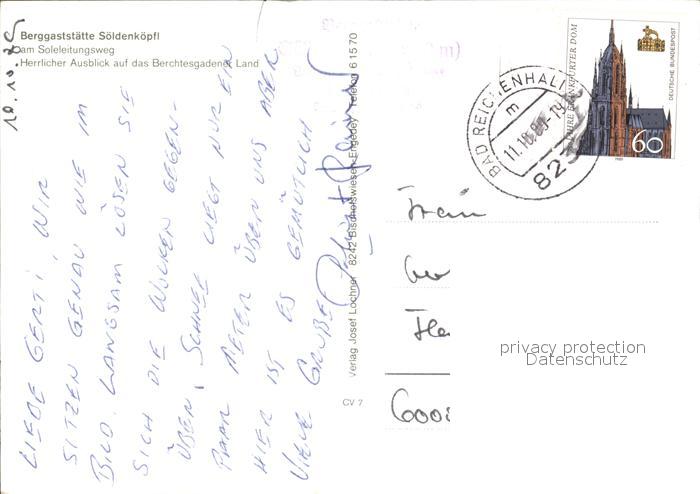 Berggaststätte Söldenköpfl
am Soleleitungsweg
Herrlicher Ausblick auf das Berchtesgadener Land
LIEBE GERTI, WIR
SITZEN GENAU WIE IM
BILD. LANGSAM LÖSEN SIE
SICH DIE WOLKEN GEGEN-
ÜBER, SCHNEE LIEGT NUR EIN
PAAR METER ÜBER UNS ABER
HIER IST ES GEMÜTLICH
VIELE GRÜßE
Verlag Josef Lochner 8242 Bischofswiesen-Engedey Telefon 61570
CV 7
BAD REICHENHALL
m
11.10.
823
JAHRE FRANKFURTER DOM
DEUTSCHE BUNDESPOST
60
Frau
privacy protection
Datenschutz
600